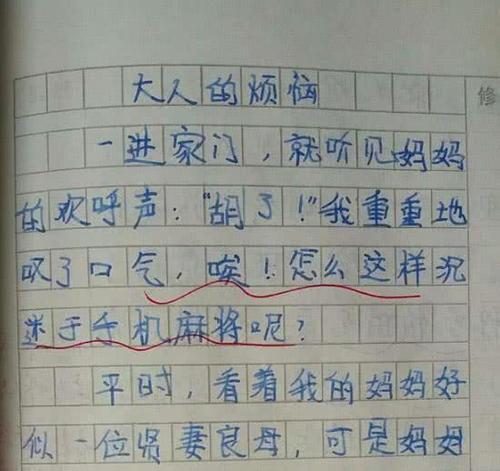 大人的烦恼
修
一进家门，就听见妈妈
的欢呼声："胡了！"我重重地
叹了口气，唉！怎么这样沉
迷于手机麻将呢？
平时，看着我的妈妈好
似一位贤妻良母，可是妈妈